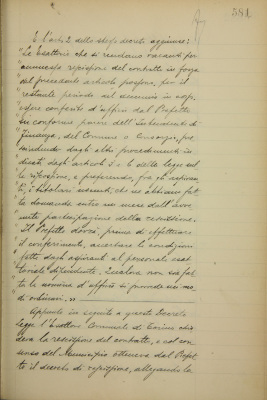 381
E l'art. 2 dello stesso decreto aggiunse:
"Le Esattorie che si rendono vacanti per
"ammessa rescissione del contratto in forza
"del precedente articolo possono, per il
"restante periodo del decennio in corso,
"essere conferite d'ufficio dal Prefetto
"su conforme parere dell'Intendente di
"Finanza, del Comune o Consorzio, pre
"scindendo dagli altri procedimenti in
"dicati dagli articoli 3 e della legge sul
"la riscossione, e preferendo, fra gli aspiran
"ti, i titolari uscenti che ne abbiano fat
"ta domanda entro un mese dall'avve
"nuta partecipazione della rescissione.
"Il Prefetto dovrà, prima di effettuare
"il conferimento, accertare le condizioni
"fatte dagli aspiranti al personale esat
"toriale dipendente. Qualora non sia fat
"ta la nomina d'ufficio si provvede nei mo
"di ordinari."
Appunto in seguito a questo Decreto
Legge l'Esattore Comunale di Torino chie
deva la rescissione del contratto, e col con
senso del Municipio otteneva dal Prefet
to il decreto di rescissione, allegando la